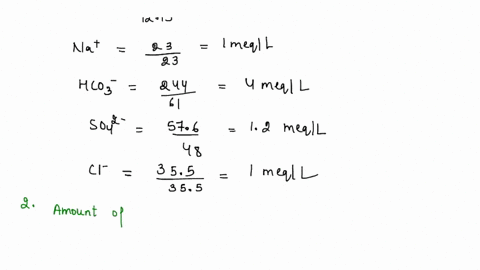 12.15
Na⁺ = 23/23 = 1 meq/L
HCO₃⁻ = 244/61 = 4 meq/L
SO₄²⁻ = 57.6/48 = 1.2 meq/L
Cl⁻ = 35.5/35.5 = 1 meq/L
2. Amount of